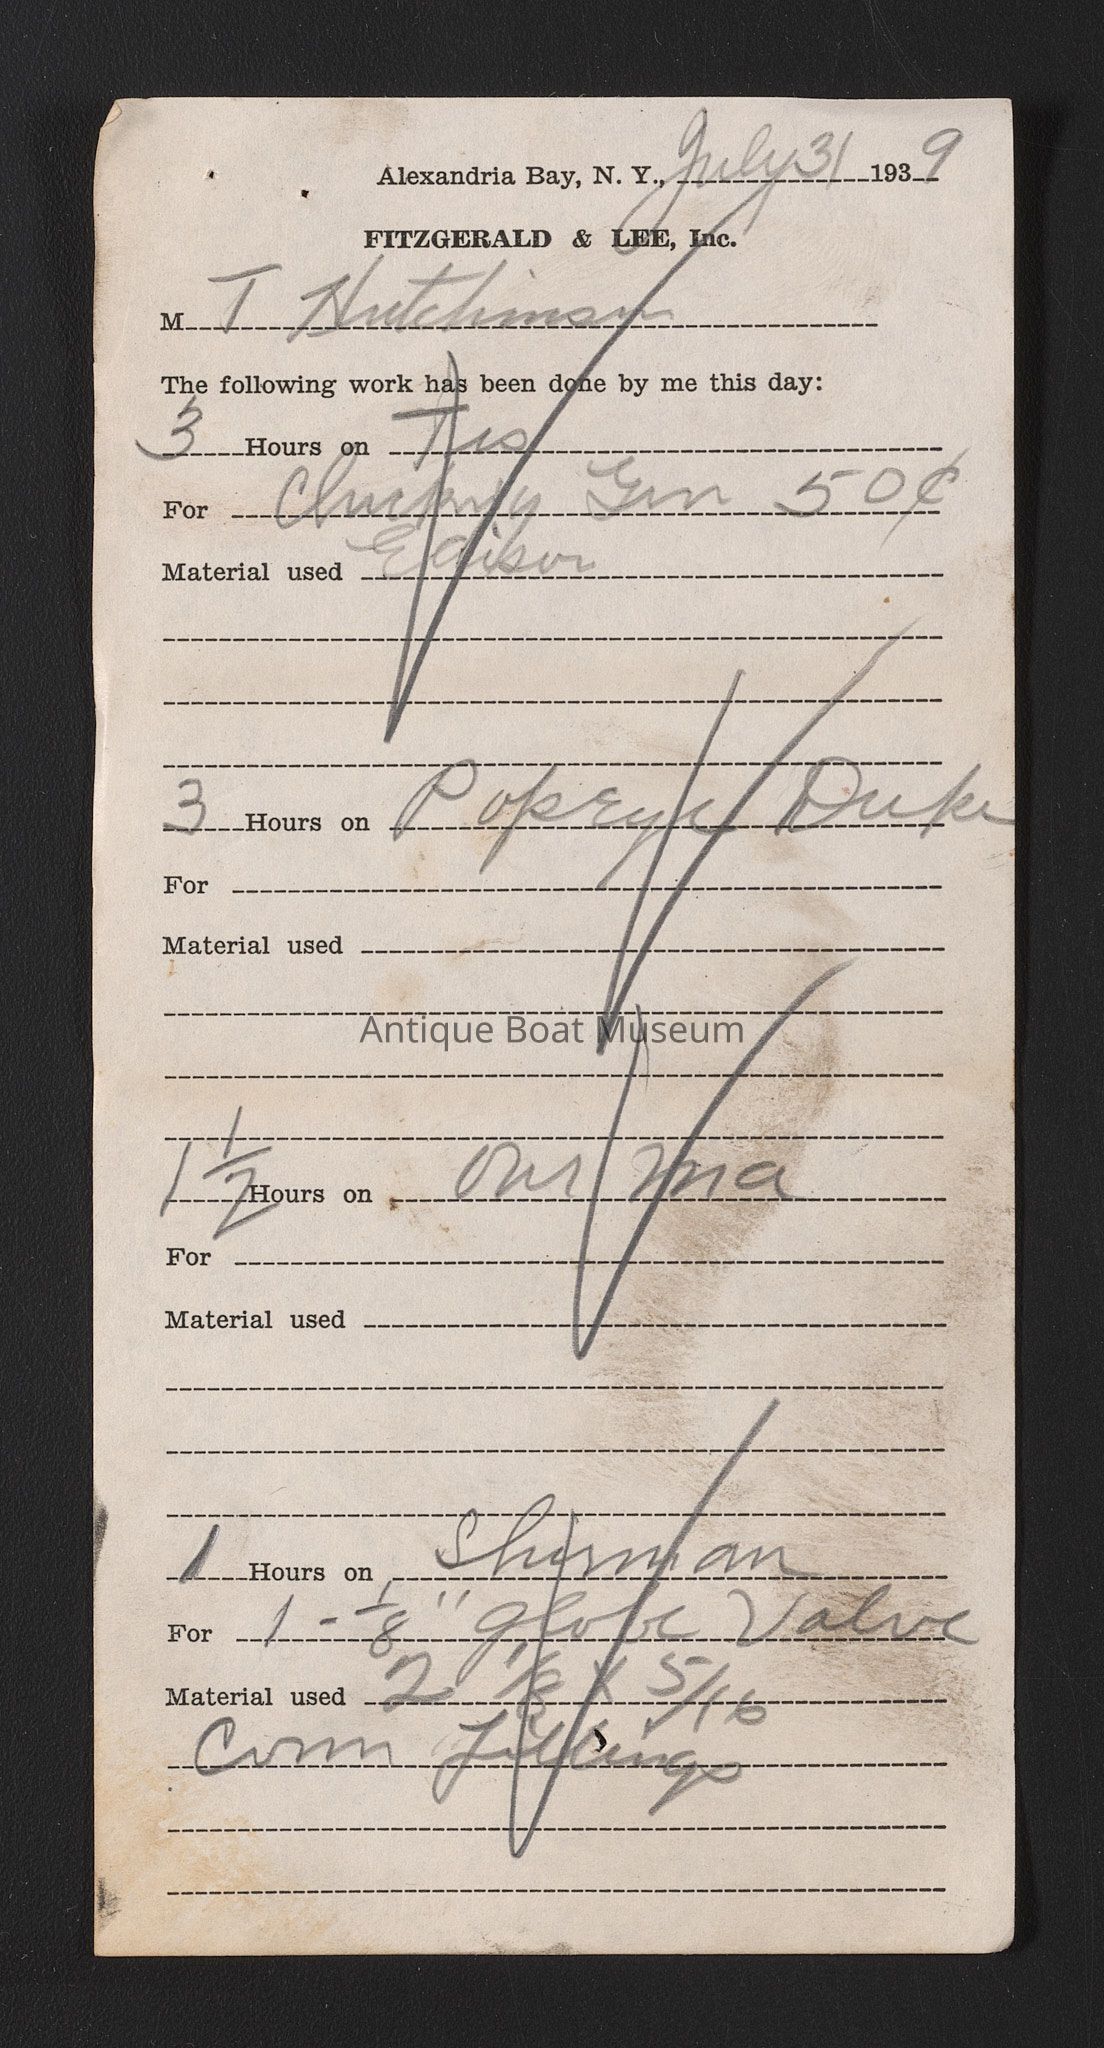 Alexandria Bay, N. Y., July 31 1939
FITZGERALD & LEE, Inc.
M T Hutchinson
The following work has been done by me this day:
3 Hours on
For Gen 50¢
Material used Edison
3 Hours on Popeye Duke
For
Material used
Antique Boat Museum
1 1/2 Hours on Our Ma
For
Material used
1 Hours on Sherman
For 1 - 1/8" globe Valve
Material used 2 1/8 x 5/16
Conn Fittings